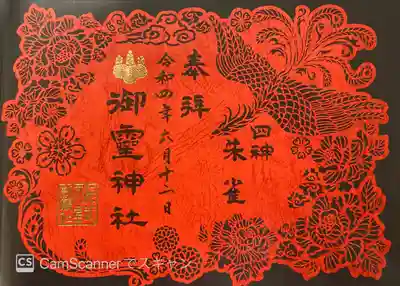 奉拝
四神
朱雀
令和四年六月十二日
御霊神社
CS CamScannerでスキャン